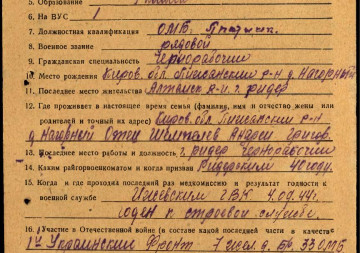 5. Образование
6. На ВУС 1
7. Должностная квалификация ОМБ.
8. Военное звание рядовой
9. Гражданская специальность Чернорабочий
10. Место рождения Киров. обл. Пижанский р-н д. Нагорный
11. Последнее место жительства г. Риддер
12. Где проживает в настоящее время семья (фамилия, имя и отчество жены или
родителей и точный их адрес) Киров. обл. Пижанский р-н
д. Нагорной Отец Андрей
13. Последнее место работы и должность г. Риддер Чернорабочий
14. Каким райгорвоенкоматом и когда призван Риддерским 40 году.
15. Когда и где проходил последний раз медкомиссию и результат годности к
военной службе Ижевским ГВК 4.09.44г.
годен к строевой службе
16. Участие в Отечественной войне (в составе какой последней части в качестве
1й Украинский Фронт